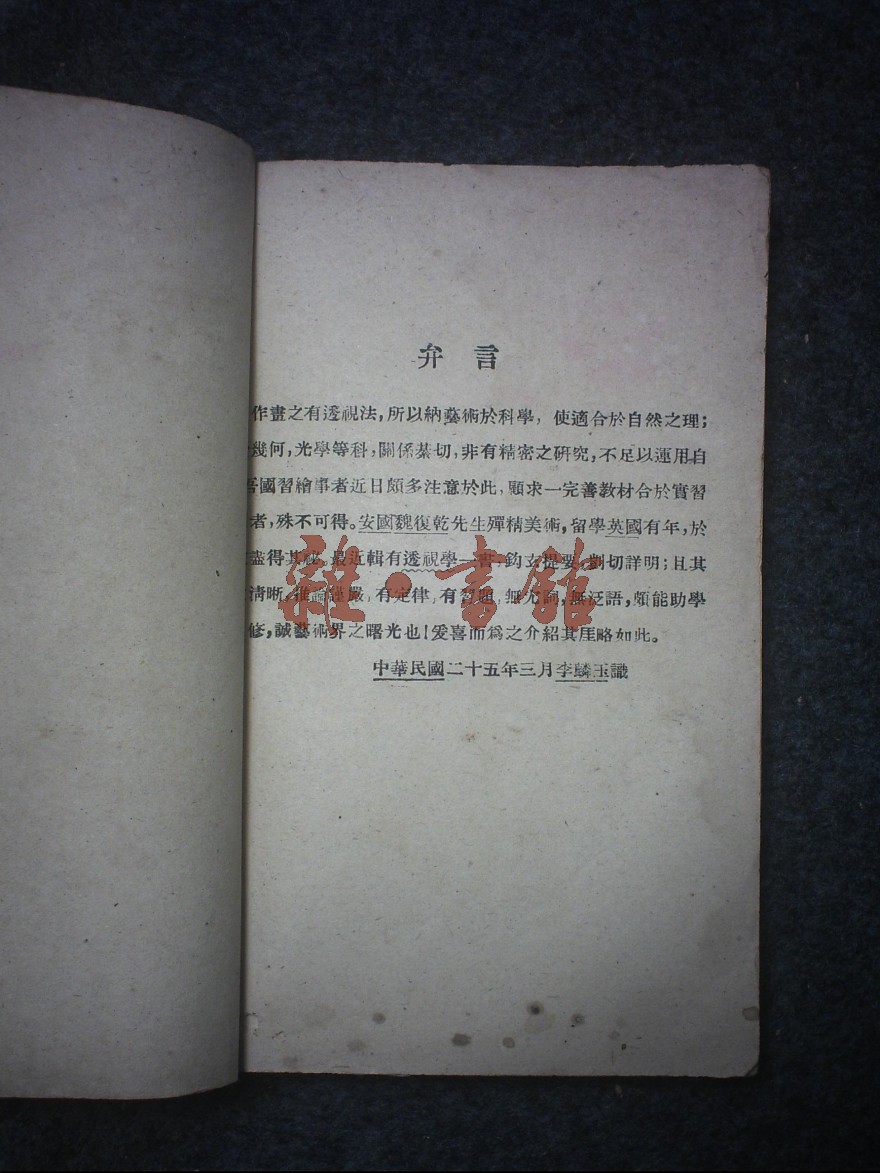 弁言
作畫之有透視法，所以納藝術於科學，使適合於自然之理；
幾何，光學等科，關係綦切，非有精密之研究，不足以運用自
吾國習繪事者近日頗多注意於此，顧求一完善教材合於實習
者，殊不可得。安國魏復乾先生殫精美術，留學英國有年，於
盡得其秘。最近輯有透視學一書，鈎玄提要，剴切詳明；且其
清晰，推論謹嚴，有定律，有習題，無冗詞，無泛語，頗能助學
修，誠藝術界之曙光也！爰喜而爲之介紹其厓略如此。
中華民國二十五年三月李麟玉識
雜·書館